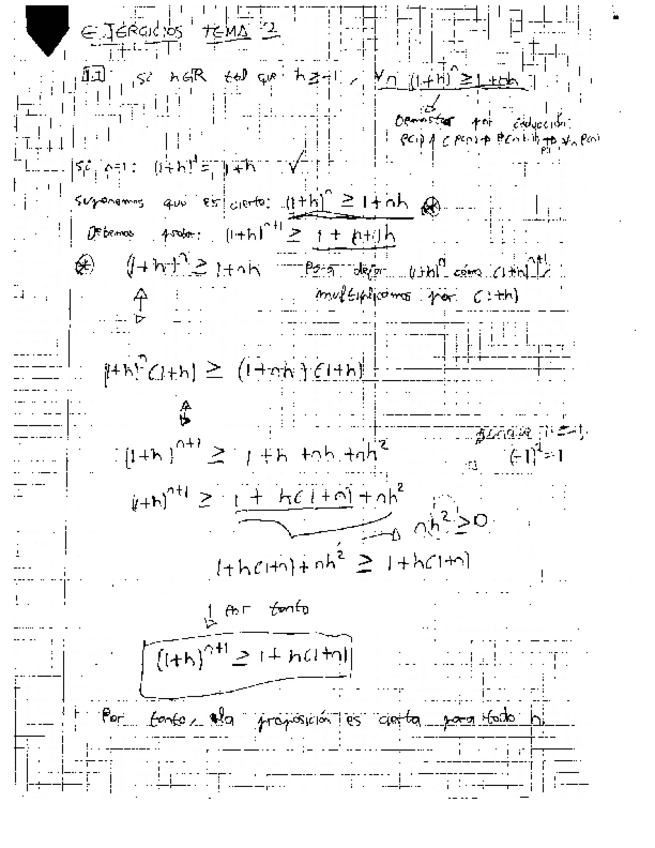 EJERCICIOS TEMA 2
1.1 Si h∈R tal que h≥-1, ∀n (1+h)^n ≥ 1+nh
Demostrar por inducción:
Si n=1: (1+h)^1 = 1+h ✓
Suponemos que es cierto: (1+h)^n ≥ 1+nh ⊛
Debemos probar: (1+h)^{n+1} ≥ 1+(n+1)h
⊛ (1+h)^n ≥ 1+nh Para dejar (1+h)^n como (1+h)^{n+1},
multiplicamos por (1+h)
(1+h)^n (1+h) ≥ (1+nh)(1+h)
(1+h)^{n+1} ≥ 1+h+nh+nh^2
(-1)^2=1
(1+h)^{n+1} ≥ 1+h(1+n)+nh^2
nh^2 ≥ 0
1+h(1+n)+nh^2 ≥ 1+h(1+n)
↓ Por tanto
(1+h)^{n+1} ≥ 1+h(1+n)
Por tanto, la proposición es cierta para todo n.